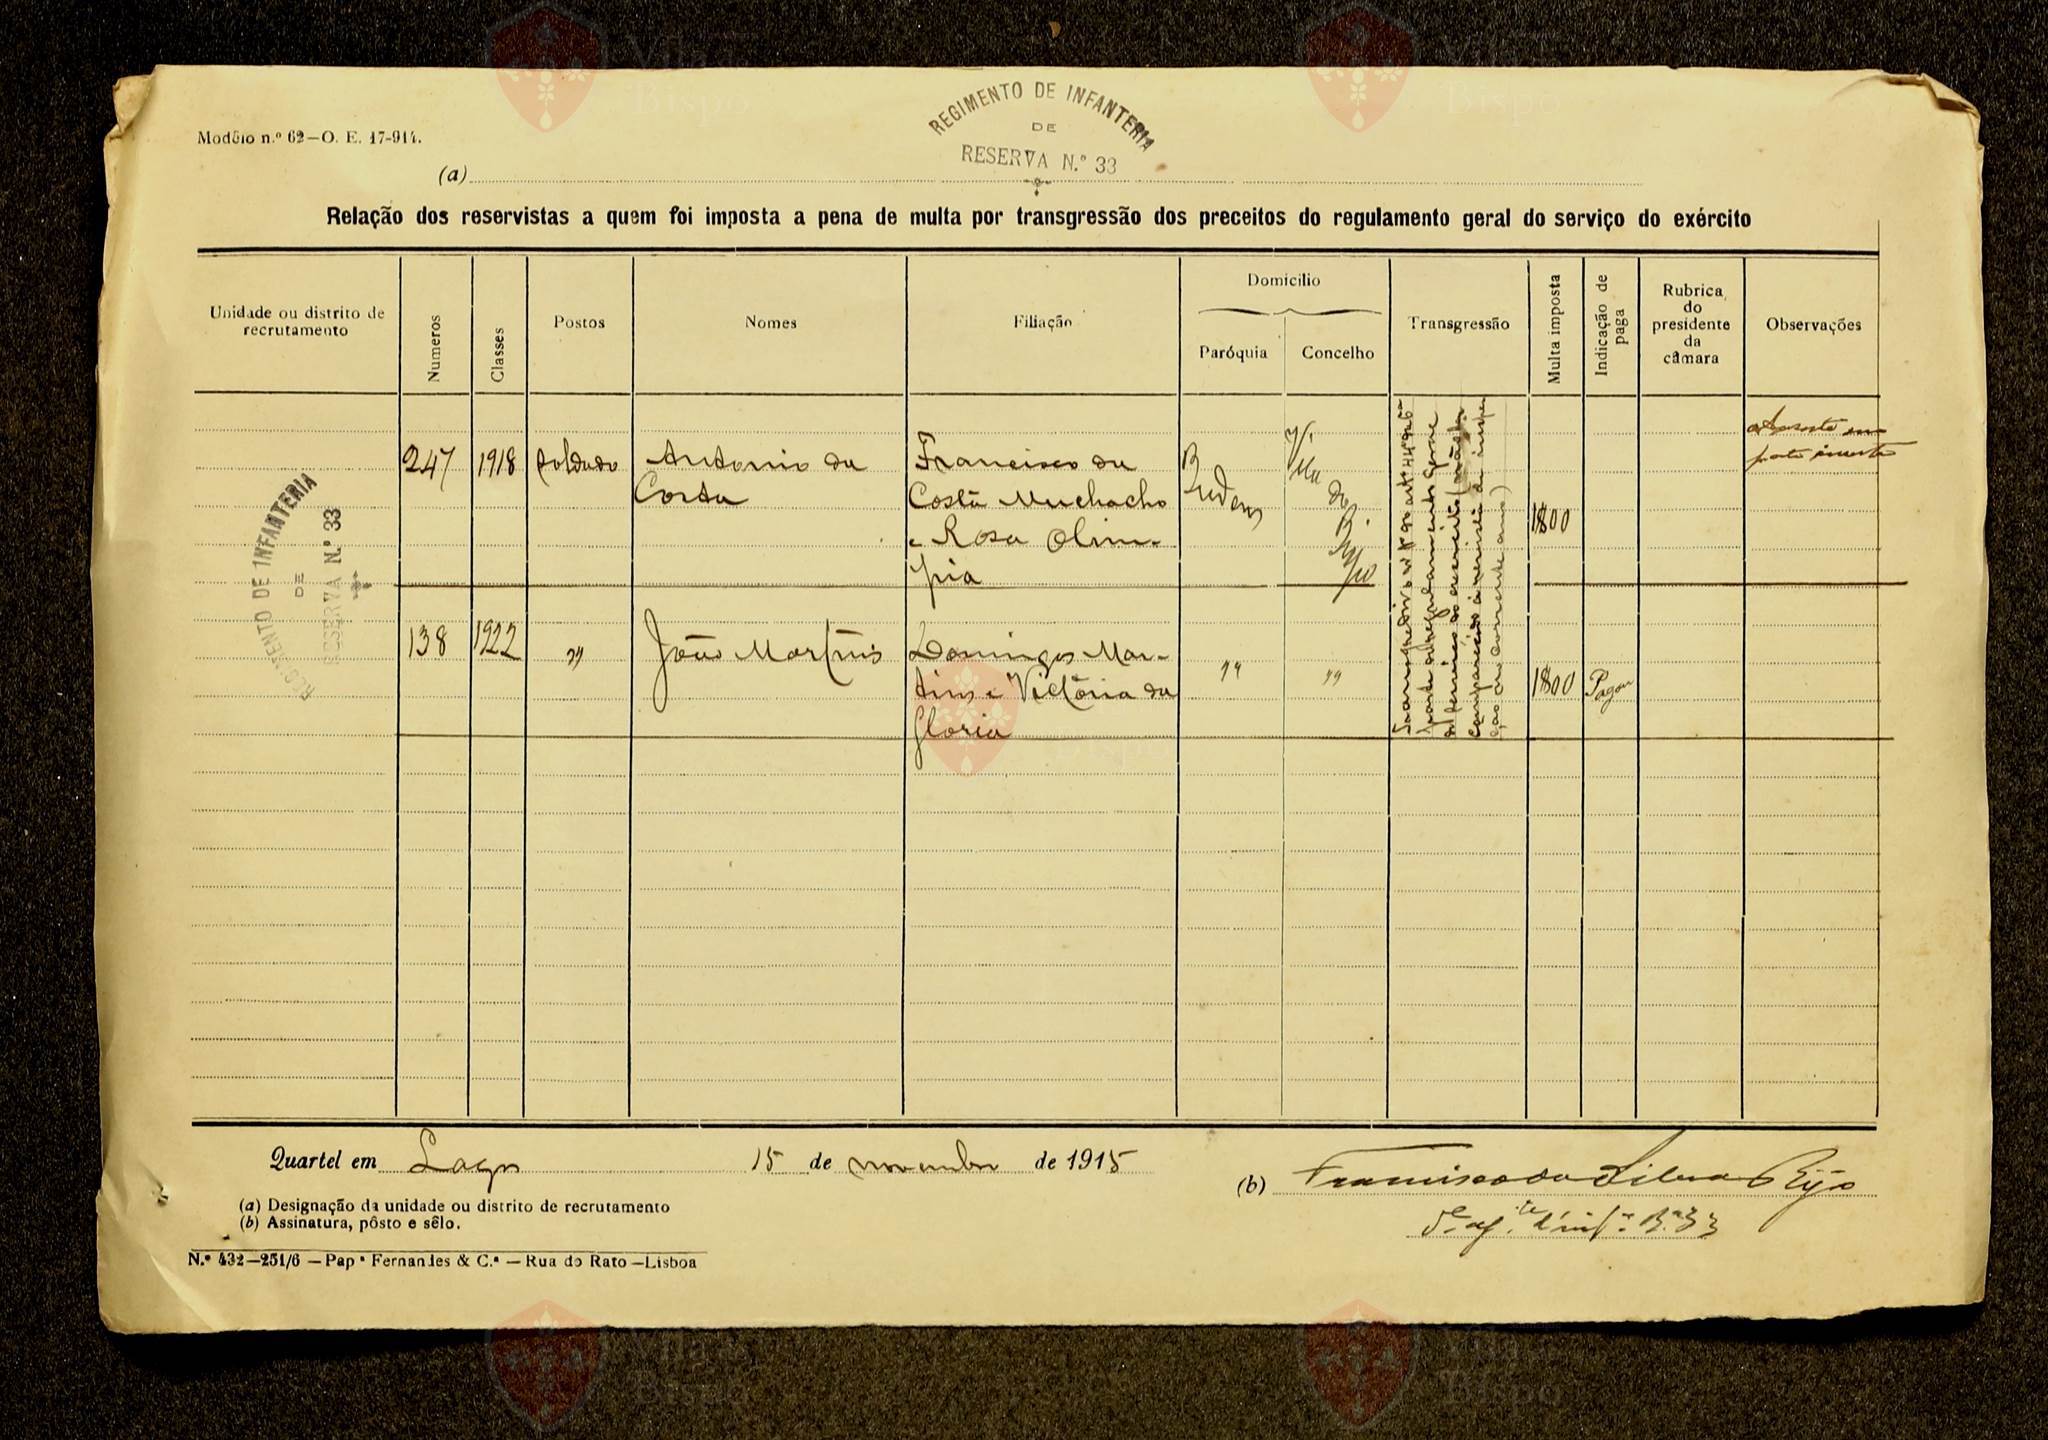 Modêlo n.º 62—O. E. 17-914.
REGIMENTO DE INFANTERIA
DE
RESERVA N.º 33
(a)
Relação dos reservistas a quem foi imposta a pena de multa por transgressão dos preceitos do regulamento geral do serviço do exército
Unidade ou distrito de recrutamento
Numeros
Classes
Postos
Nomes
Filiação
Domicilio
Paróquia
Concelho
Transgressão
Multa imposta
Indicação de paga
Rubrica do presidente da câmara
Observações
REGIMENTO DE INFANTERIA
DE
RESERVA N.º 33
247 1918 soldado Antonio da
Costa
Francisco da
Costa Muchacho
e Rosa Olim-
pia
Budens
Vila do Bispo
Transgrediu o nº
parte do regulamento geral
do serviço do exercito
comparecido á revista de inspe
ção no corrente ano)
1$00
Ausente em
parte incerta
138 1922 " João Martins
Domingos Mar-
tins e Victória da
Gloria
" "
1$00 Pagou
Quartel em Lagos 15 de novembro de 1915
(b) Francisco da Silva Rijo
(a) Designação da unidade ou distrito de recrutamento
(b) Assinatura, pôsto e sêlo.
N.º 432—251/6 —Pap.ª Fernandes & C.ª —Rua do Rato—Lisboa
Vila do
Bispo